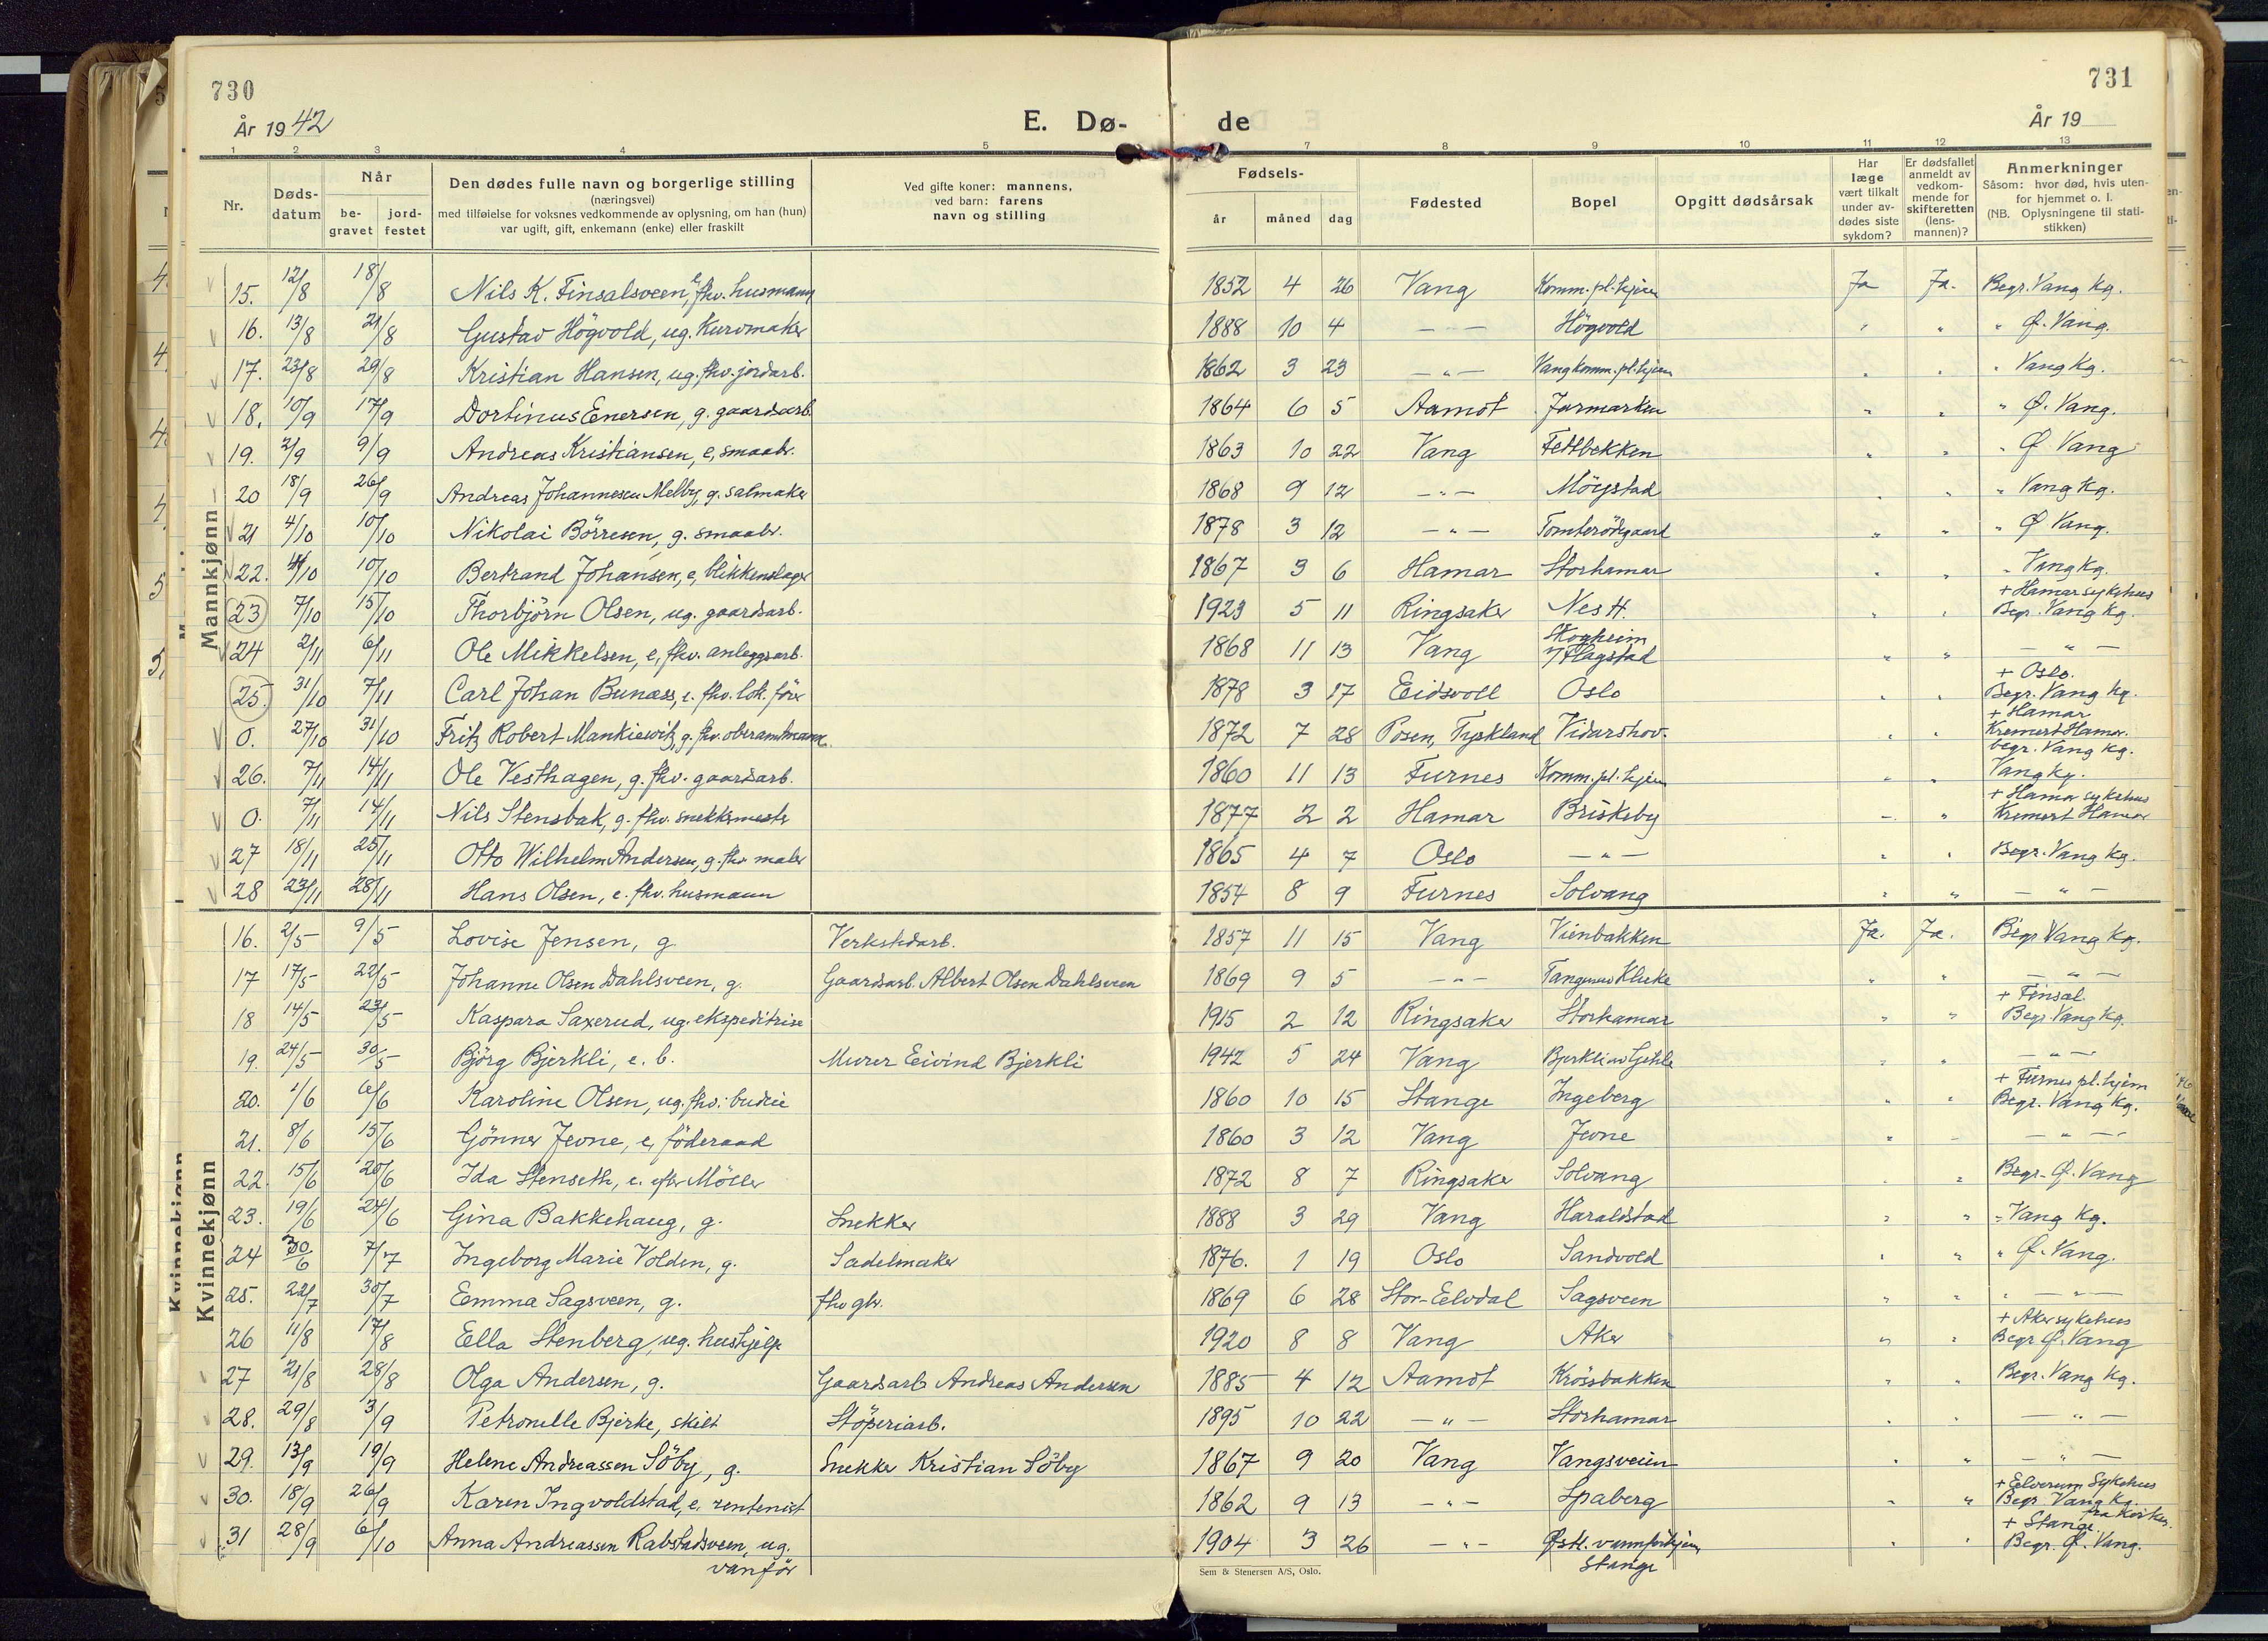 730
731
År 1942
E. Dø-
de
År 19
1 2 3 4 5 7 8 9 10 11 12 13
Nr.
Døds-
datum
Når
be-
gravet
jord-
festet
Den dødes fulle navn og borgerlige stilling
(næringsvei)
med tilføielse for voksnes vedkommende av oplysning, om han (hun)
var ugift, gift, enkemann (enke) eller fraskilt
Ved gifte koner: mannens,
ved barn: farens
navn og stilling
Fødsels-
år måned dag
Fødested
Bopel
Opgitt dødsårsak
Har
læge
vært tilkalt
under av-
dødes siste
sykdom?
Er dødsfallet
anmeldt av
vedkom-
mende for
skifteretten
(lens-
mannen)?
Anmerkninger
Såsom: hvor død, hvis uten-
for hjemmet o. l.
(NB. Oplysningene til stati-
stikken)
Mannkjønn
15. 12/8 18/8 Nils K. Finsalsveen, e, fhv. husmann 1852 4 26 Vang Komm. pl. hjem Ja Ja. Begr. Vang Kg.
16. 13/8 21/8 Gustav Högvold, ug. Kurvmaker 1888 10 4 — — Högvold " " " Ø. Vang.
17. 23/8 29/8 Kristian Hansen, ug. fhv. jordarb. 1862 3 23 — " — Vang komm. pl. hjem " " " Vang Kg.
18. 10/9 17/9 Dortinus Enersen, g. gaardsarb. 1864 6 5 Aamot Jarmarken " " " Ø. Vang.
19. 2/9 9/9 Andreas Kristiansen, e, smaabr. 1863 10 22 Vang Fettbekken " " " Ø Vang
20 18/9 26/9 Andreas Johannesen Melby, g. salmaker 1868 9 12 — " — Mögstad " " " Vang Kg.
21 4/10 10/10 Nikolai Börresen, g. smaabr. 1878 3 12 — " — Tomterödgaard " " " Ø Vang.
22. 4/10 10/10 Bertrand Johansen, e, blikkenslager 1867 3 6 Hamar Storhamar " " " Vang Kg.
23 7/10 15/10 Thorbjörn Olsen, ug. gaardsarb. 1923 5 11 Ringsaker Nes H. " " + Hamar sykehus
Begr. Vang Kg.
24 2/11 6/11 Ole Mikkelsen, e, fhv. anleggsarb. 1868 11 13 Vang Skogheim
v/ Flagstad " " — " —
25. 31/10 7/11 Carl Johan Bunæss, e. fhv. lok. förer 1878 3 17 Eidsvoll Oslo " " + Oslo.
Begr. Vang Kg.
0. 27/10 31/10 Fritz Robert Mankiewitz, g. fhv. oberamtmann. 1872 7 28 Posen, Tyskland Vidarshov. " " + Hamar
Kremert Hamar.
begr. Vang Kg.
26. 7/11 14/11 Ole Vesthagen, g. fhv. gaardsarb. 1860 11 13 Furnes Komm. pl. hjem " " Vang Kg.
0. 7/11 14/11 Nils Stensbak, g. fhv. snekkermester 1877 2 2 Hamar Briskeby — " + Hamar sykehus
Kremert Hamar
27 18/11 25/11 Otto Wilhelm Andersen, g. fhv maler 1865 4 7 Oslo — " — " " Begr. Vang Kg.
28 23/11 28/11 Hans Olsen, e. fhv. husmann 1854 8 9 Furnes Solvang " " — " —
Kvinnekjønn
16. 2/5 9/5 Lovise Jensen, g Verkstedarb. 1857 11 15 Vang Vienbakken Ja. Ja. Begr Vang Kg.
17 17/5 22/5 Johanne Olsen Dahlsveen, g. Gaardsarb. Albert Olsen Dahlsveen 1869 9 5 — " — " " — " —
18 14/5 23/5 Kaspara Saxerud, ug. ekspeditrise 1915 2 12 Ringsaker Storhamar " " + Finsal.
Begr. Vang Kg.
19. 24/5 30/5 Björg Bjerkli, e. b. Murer Eivind Bjerkli 1942 5 24 Vang Bjerkli " " — " —
20. 1/6 6/6 Karoline Olsen, ug. fhv. budeie 1860 10 15 Stange Ingeberg " " + Furnes pl. hjem
Begr. Vang Kg.
21. 8/6 15/6 Gönner Jevne, e, föderaad 1860 3 12 Vang Jevne " " — " —
22. 15/6 20/6 Ida Stenseth, e. efter Möller 1872 8 7 Ringsaker Solvang " " Begr. Ø. Vang
23. 19/6 24/6 Gina Bakkehaug, g. Snekker 1888 3 29 Vang Haraldstad " " " Vang Kg.
24 30/6 7/7 Ingeborg Marie Volden, g. Sadelmaker 1876. 1 19 Oslo Sandvold " " " Ø. Vang.
25. 22/7 30/7 Emma Sagsveen, g. fhv gbr. 1869 6 28 Stor-Elvdal Sagsveen " " " — " —
26 11/8 17/8 Ella Stenberg, ug. hushjelp 1920 8 8 Vang Aker " " + Aker sykehus
Begr. Ø. Vang
27 21/8 28/8 Olga Andersen, g. Gaardsarb Andreas Andersen 1885 4 12 Aamot Krössbakken " " Begr. Vang Kg.
28. 29/8 3/9 Petronelle Bjerke, skilt Stöperiarb. 1895 10 22 — " — Storhamar " " — " —
29. 13/9 19/9 Helene Andreassen Söby, g. Snekker Kristian Söby 1867 9 20 Vang Vangsveien " " — " —
30. 18/9 26/9 Karen Ingvoldstad, e. rentenist 1862 9 13 — " — Spaberg " " + Elverum Sykehus
Begr Vang Kg.
31 28/9 6/10 Anna Andreassen Rabstadsveen, ug.
vanför 1904 3 26 — " — Østl. vanförehjem
Stange " " + Stange.
Begr. Ø. Vang.
Sem & Stenersen A/S, Oslo.